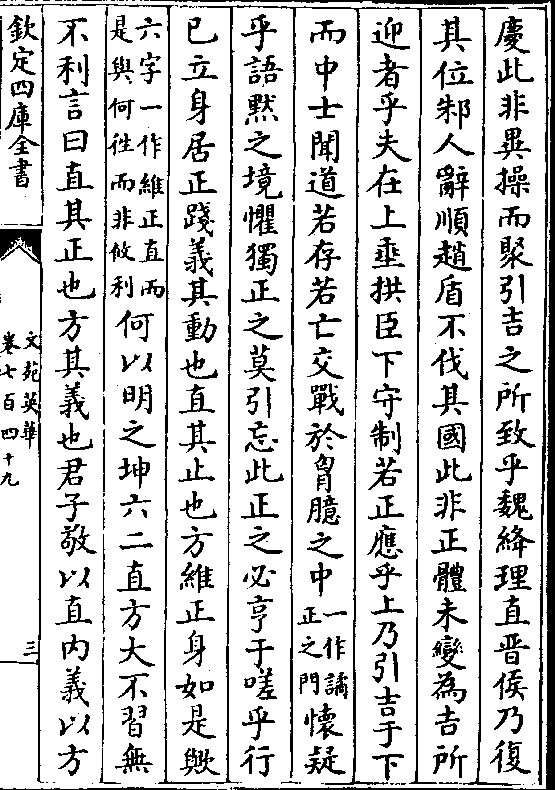 慶此非異操而聚引吉之所致乎魏絳理直晋侯乃復
其位邾人辭順趙盾不伐其國此非正體未變為吉所
迎者乎夫在上垂拱臣下守制若正應乎上乃引吉于下
而中士聞道若存若亡交戰於胷臆之中一作譎正之門懷疑
乎語黙之境懼獨正之莫引忘此正之必亨于嗟乎行
已立身居正踐義其動也直其止也方維正身如是歟
六字一作維正直而是與何徃而非攸利何以明之坤六二直方大不習無
不利言曰直其正也方其義也君子敬以直内義以方
欽定四庫全書
文苑英華
卷七百四十九
三